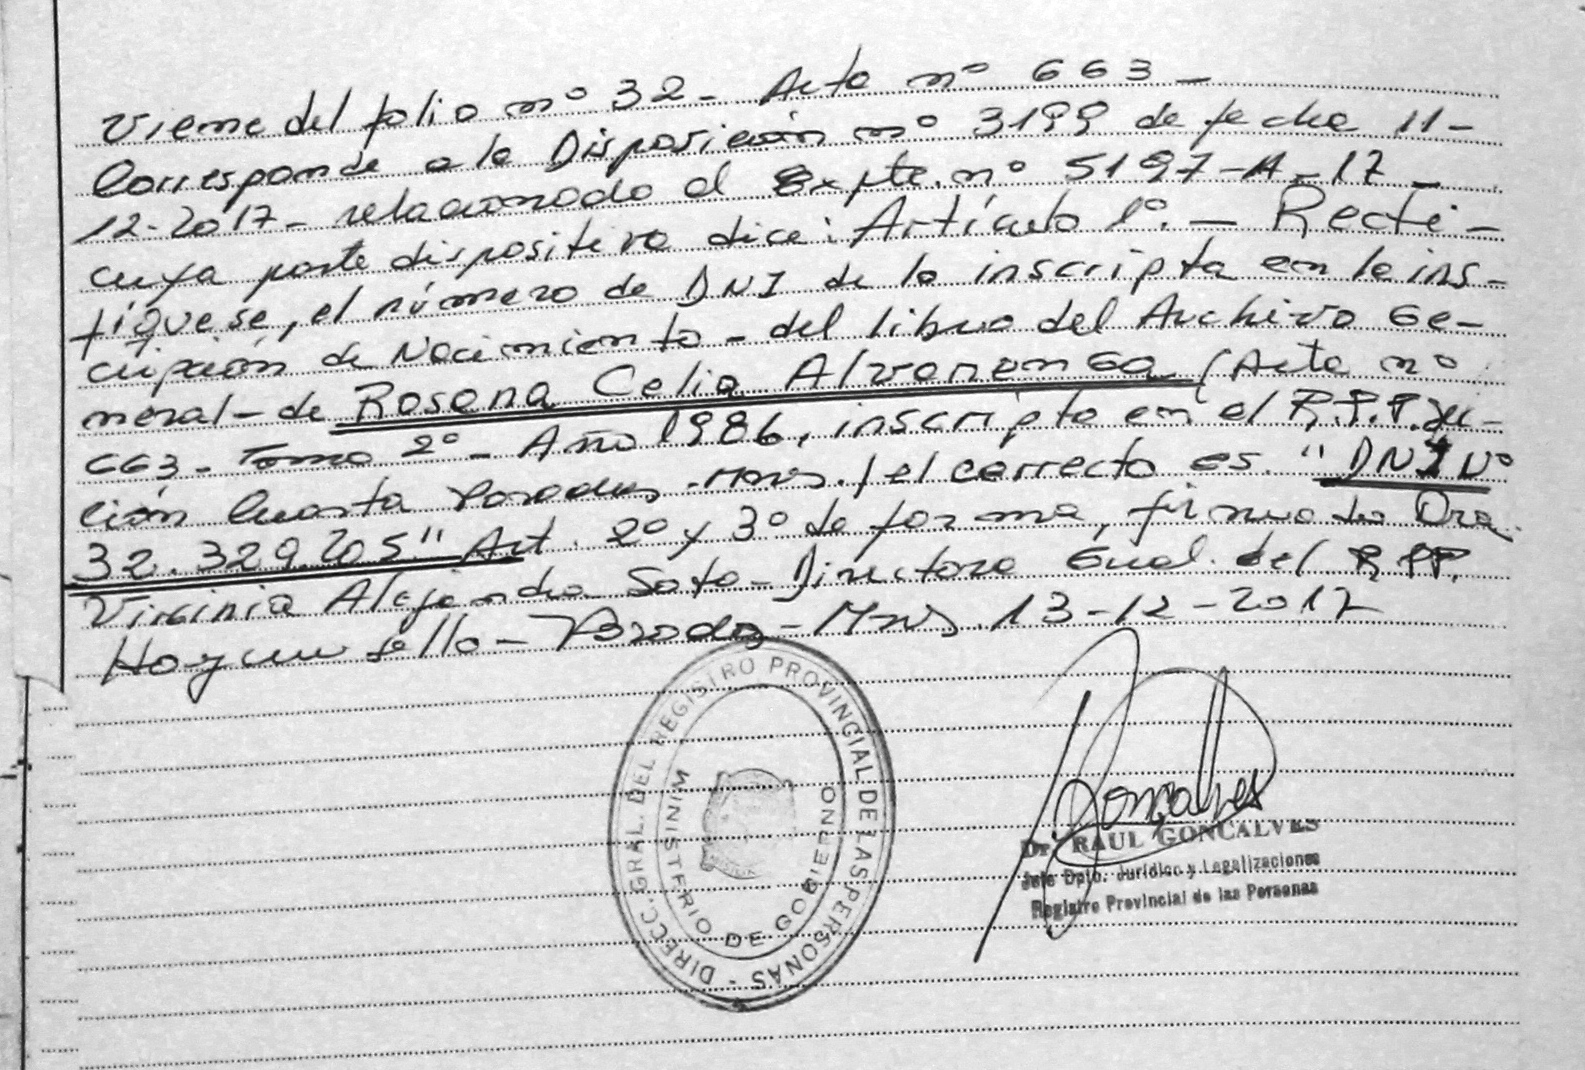 Viene del folio nº 32 - Acta nº 663 -
Corresponde a la Disposición nº 3199 de fecha 11-
12-2017 - relacionado al Expte. nº 5197-A-17 -
cuya parte dispositiva dice: Artículo 1º. - Recti-
fíquese, el número de DNI de la inscripta en la ins-
cripción de Nacimiento - del libro del Archivo Ge-
neral - de Rosana Celia Alvarenga (Acta nº
663 - Tomo 2º - Año 1986, inscripta en el R.P.P. Sec-
ción Cuarta Posadas - Mnes. / el correcto es "DNI Nº
32.329.205" Art. 2º y 3º de forma, firmado Dra.
Virginia Alejandra Soto - Directora Gral. del R.P.P.
Hay un sello - Posadas - Mnes. 13-12-2017
DIRECC. GRAL. DEL REGISTRO PROVINCIAL DE LAS PERSONAS -
MINISTERIO DE GOBIERNO
Gonçalves
Dr. RAUL GONCALVES
Jefe Dpto. Jurídico y Legalizaciones
Registro Provincial de las Personas